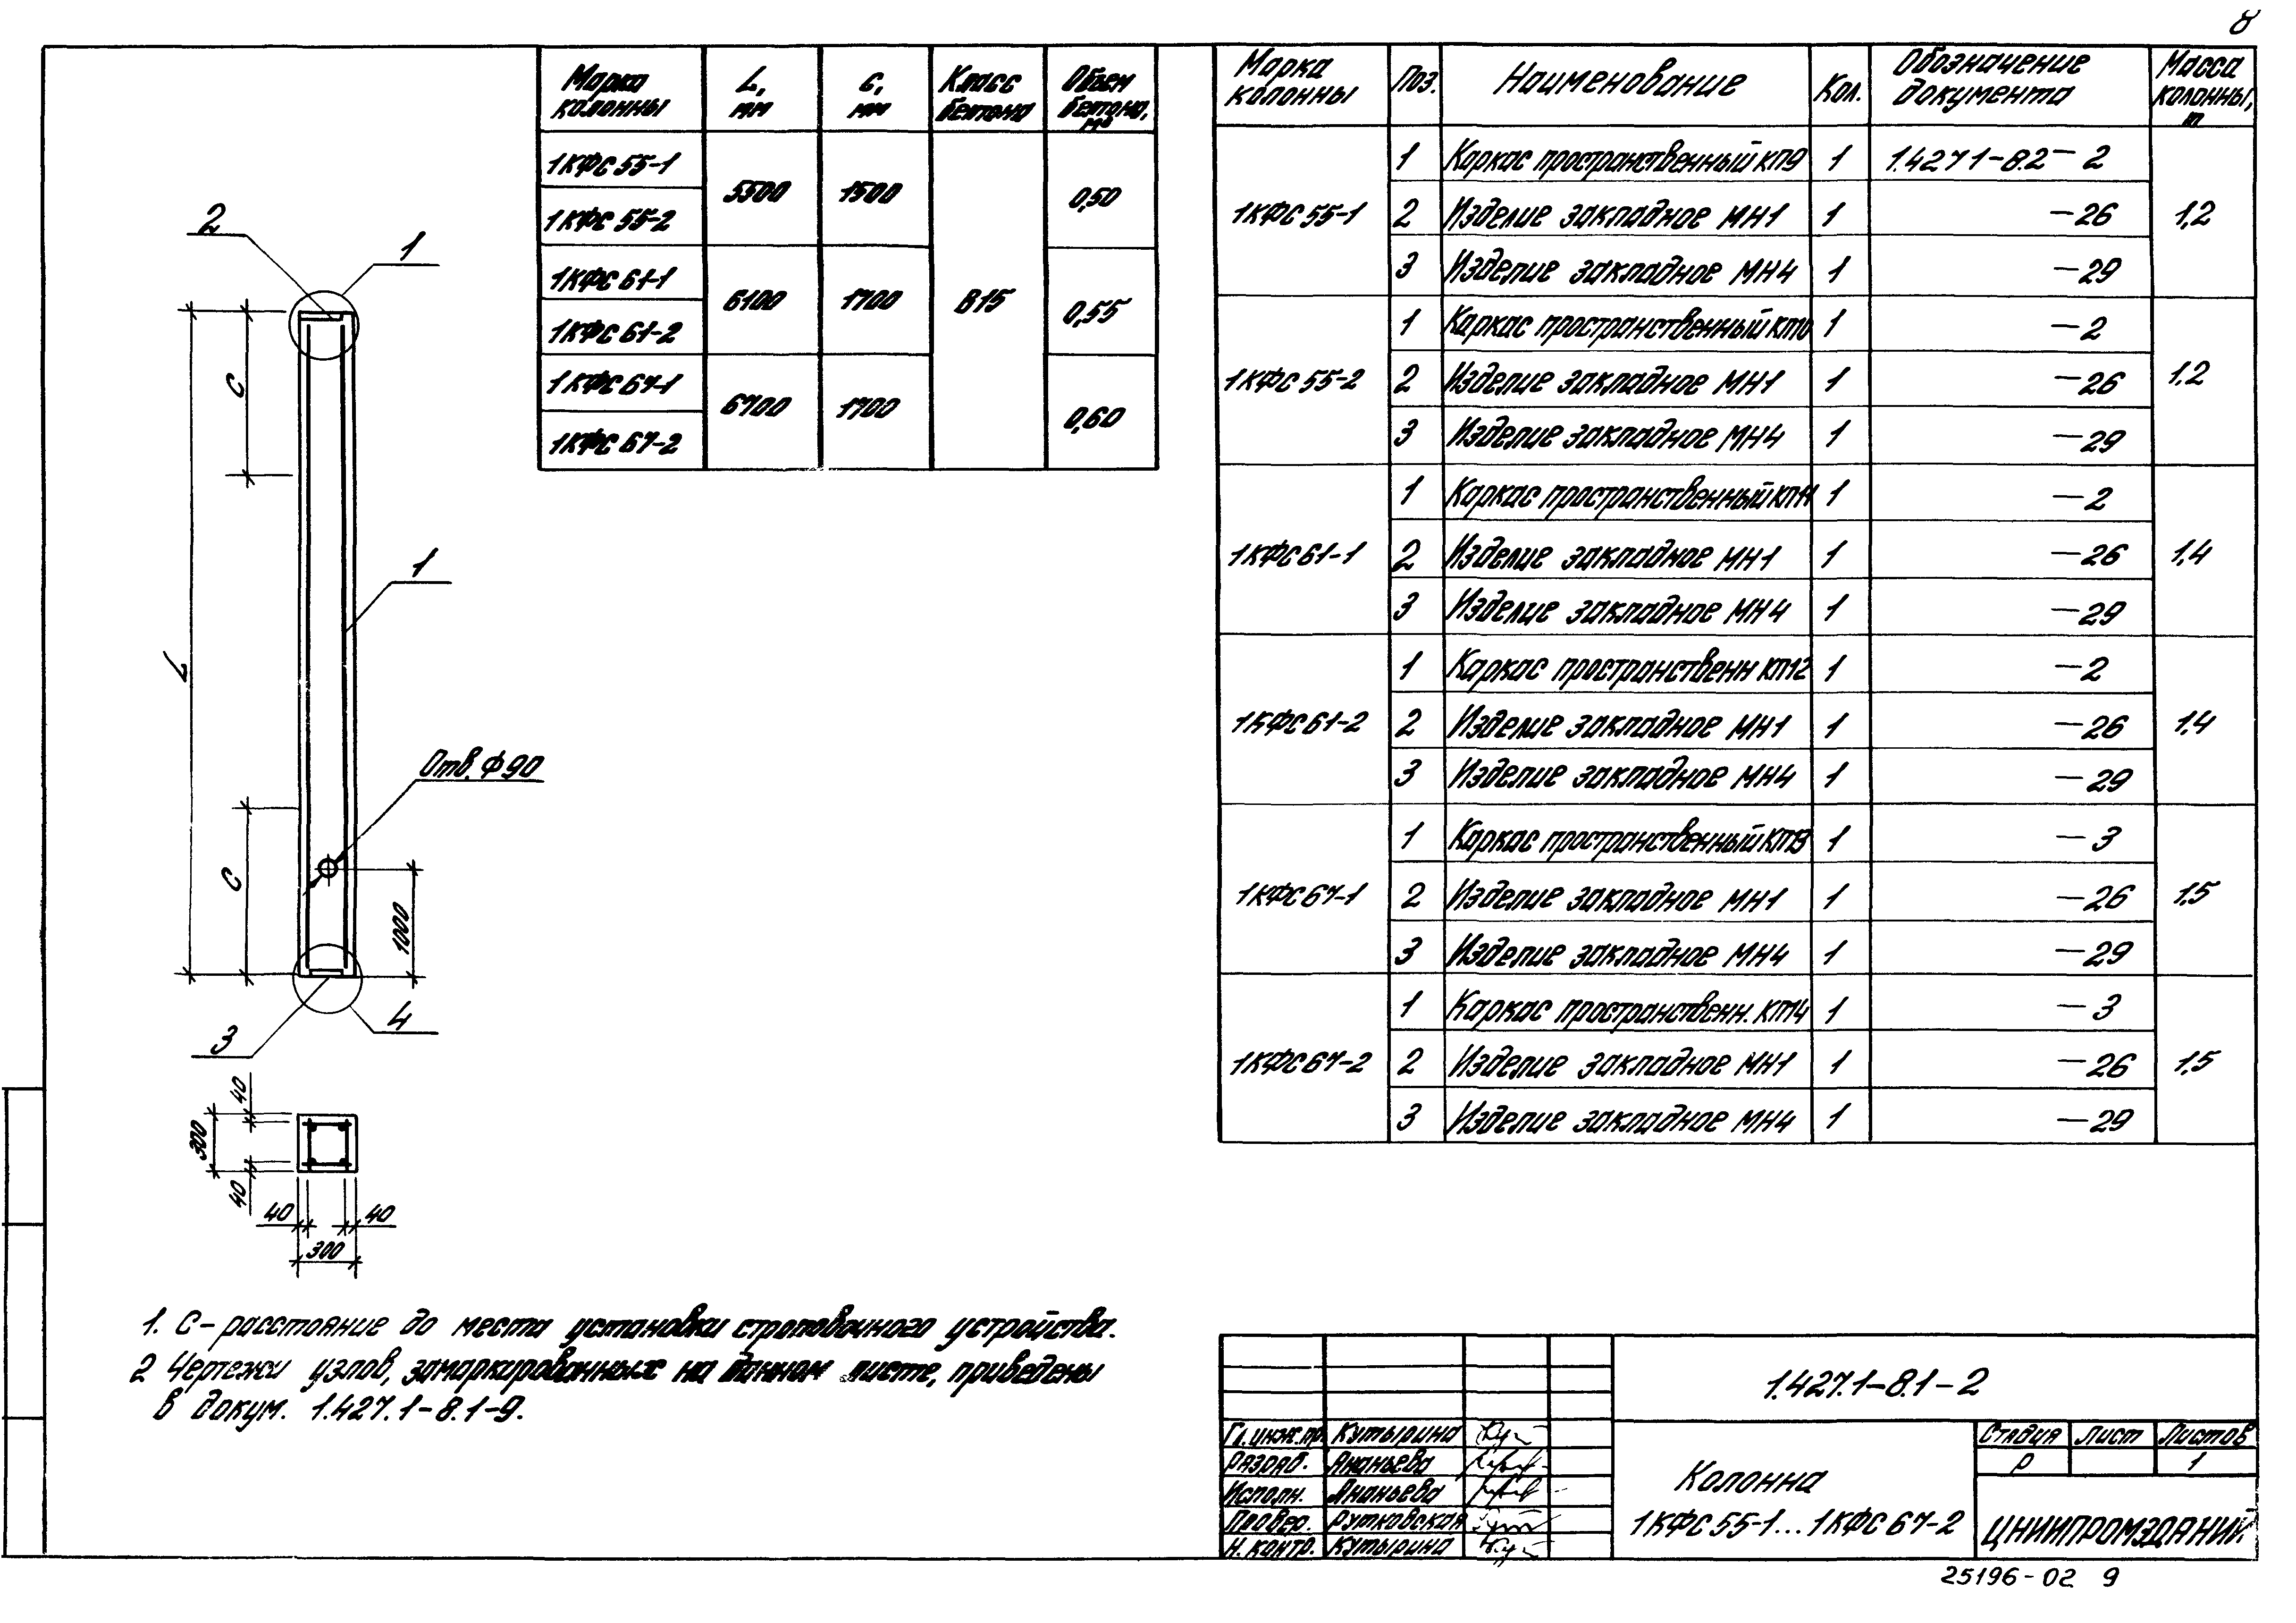 8
Марка колонны L, мм С, мм Класс бетона Объем бетона, м³
1КФС 55-1 5500 1500 В15 0,50
1КФС 55-2
1КФС 61-1 6100 1700 0,55
1КФС 61-2
1КФС 67-1 6700 1700 0,60
1КФС 67-2
Марка колонны Поз. Наименование Кол. Обозначение документа Масса колонны, т
1КФС 55-1 1 Каркас пространственный КП9 1 1.427.1-8.2-2 1,2
2 Изделие закладное МН1 1 -26
3 Изделие закладное МН4 1 -29
1КФС 55-2 1 Каркас пространственный КП10 1 -2 1,2
2 Изделие закладное МН1 1 -26
3 Изделие закладное МН4 1 -29
1КФС 61-1 1 Каркас пространственный КП11 1 -2 1,4
2 Изделие закладное МН1 1 -26
3 Изделие закладное МН4 1 -29
1КФС 61-2 1 Каркас пространственн КП12 1 -2 1,4
2 Изделие закладное МН1 1 -26
3 Изделие закладное МН4 1 -29
1КФС 67-1 1 Каркас пространственный КП13 1 -3 1,5
2 Изделие закладное МН1 1 -26
3 Изделие закладное МН4 1 -29
1КФС 67-2 1 Каркас пространственн. КП14 1 -3 1,5
2 Изделие закладное МН1 1 -26
3 Изделие закладное МН4 1 -29
2
1
С
1
L
Отв. Ф90
С
1000
4
3
40
300
40
40
40
300
1. С - расстояние до места установки строповочного устройства.
2 Чертежи узлов, замаркированных на данном листе, приведены
в докум. 1.427.1-8.1-9.
1.427.1-8.1-2
Гл.инж.пр. Кутырина
Разраб. Ананьева
Исполн. Ананьева
Провер. Рутковская
Н. контр. Кутырина
Колонна
1КФС 55-1...1КФС 67-2
Стадия Лист Листов
Р 1
ЦНИИПРОМЗДАНИЙ
25196-02 9